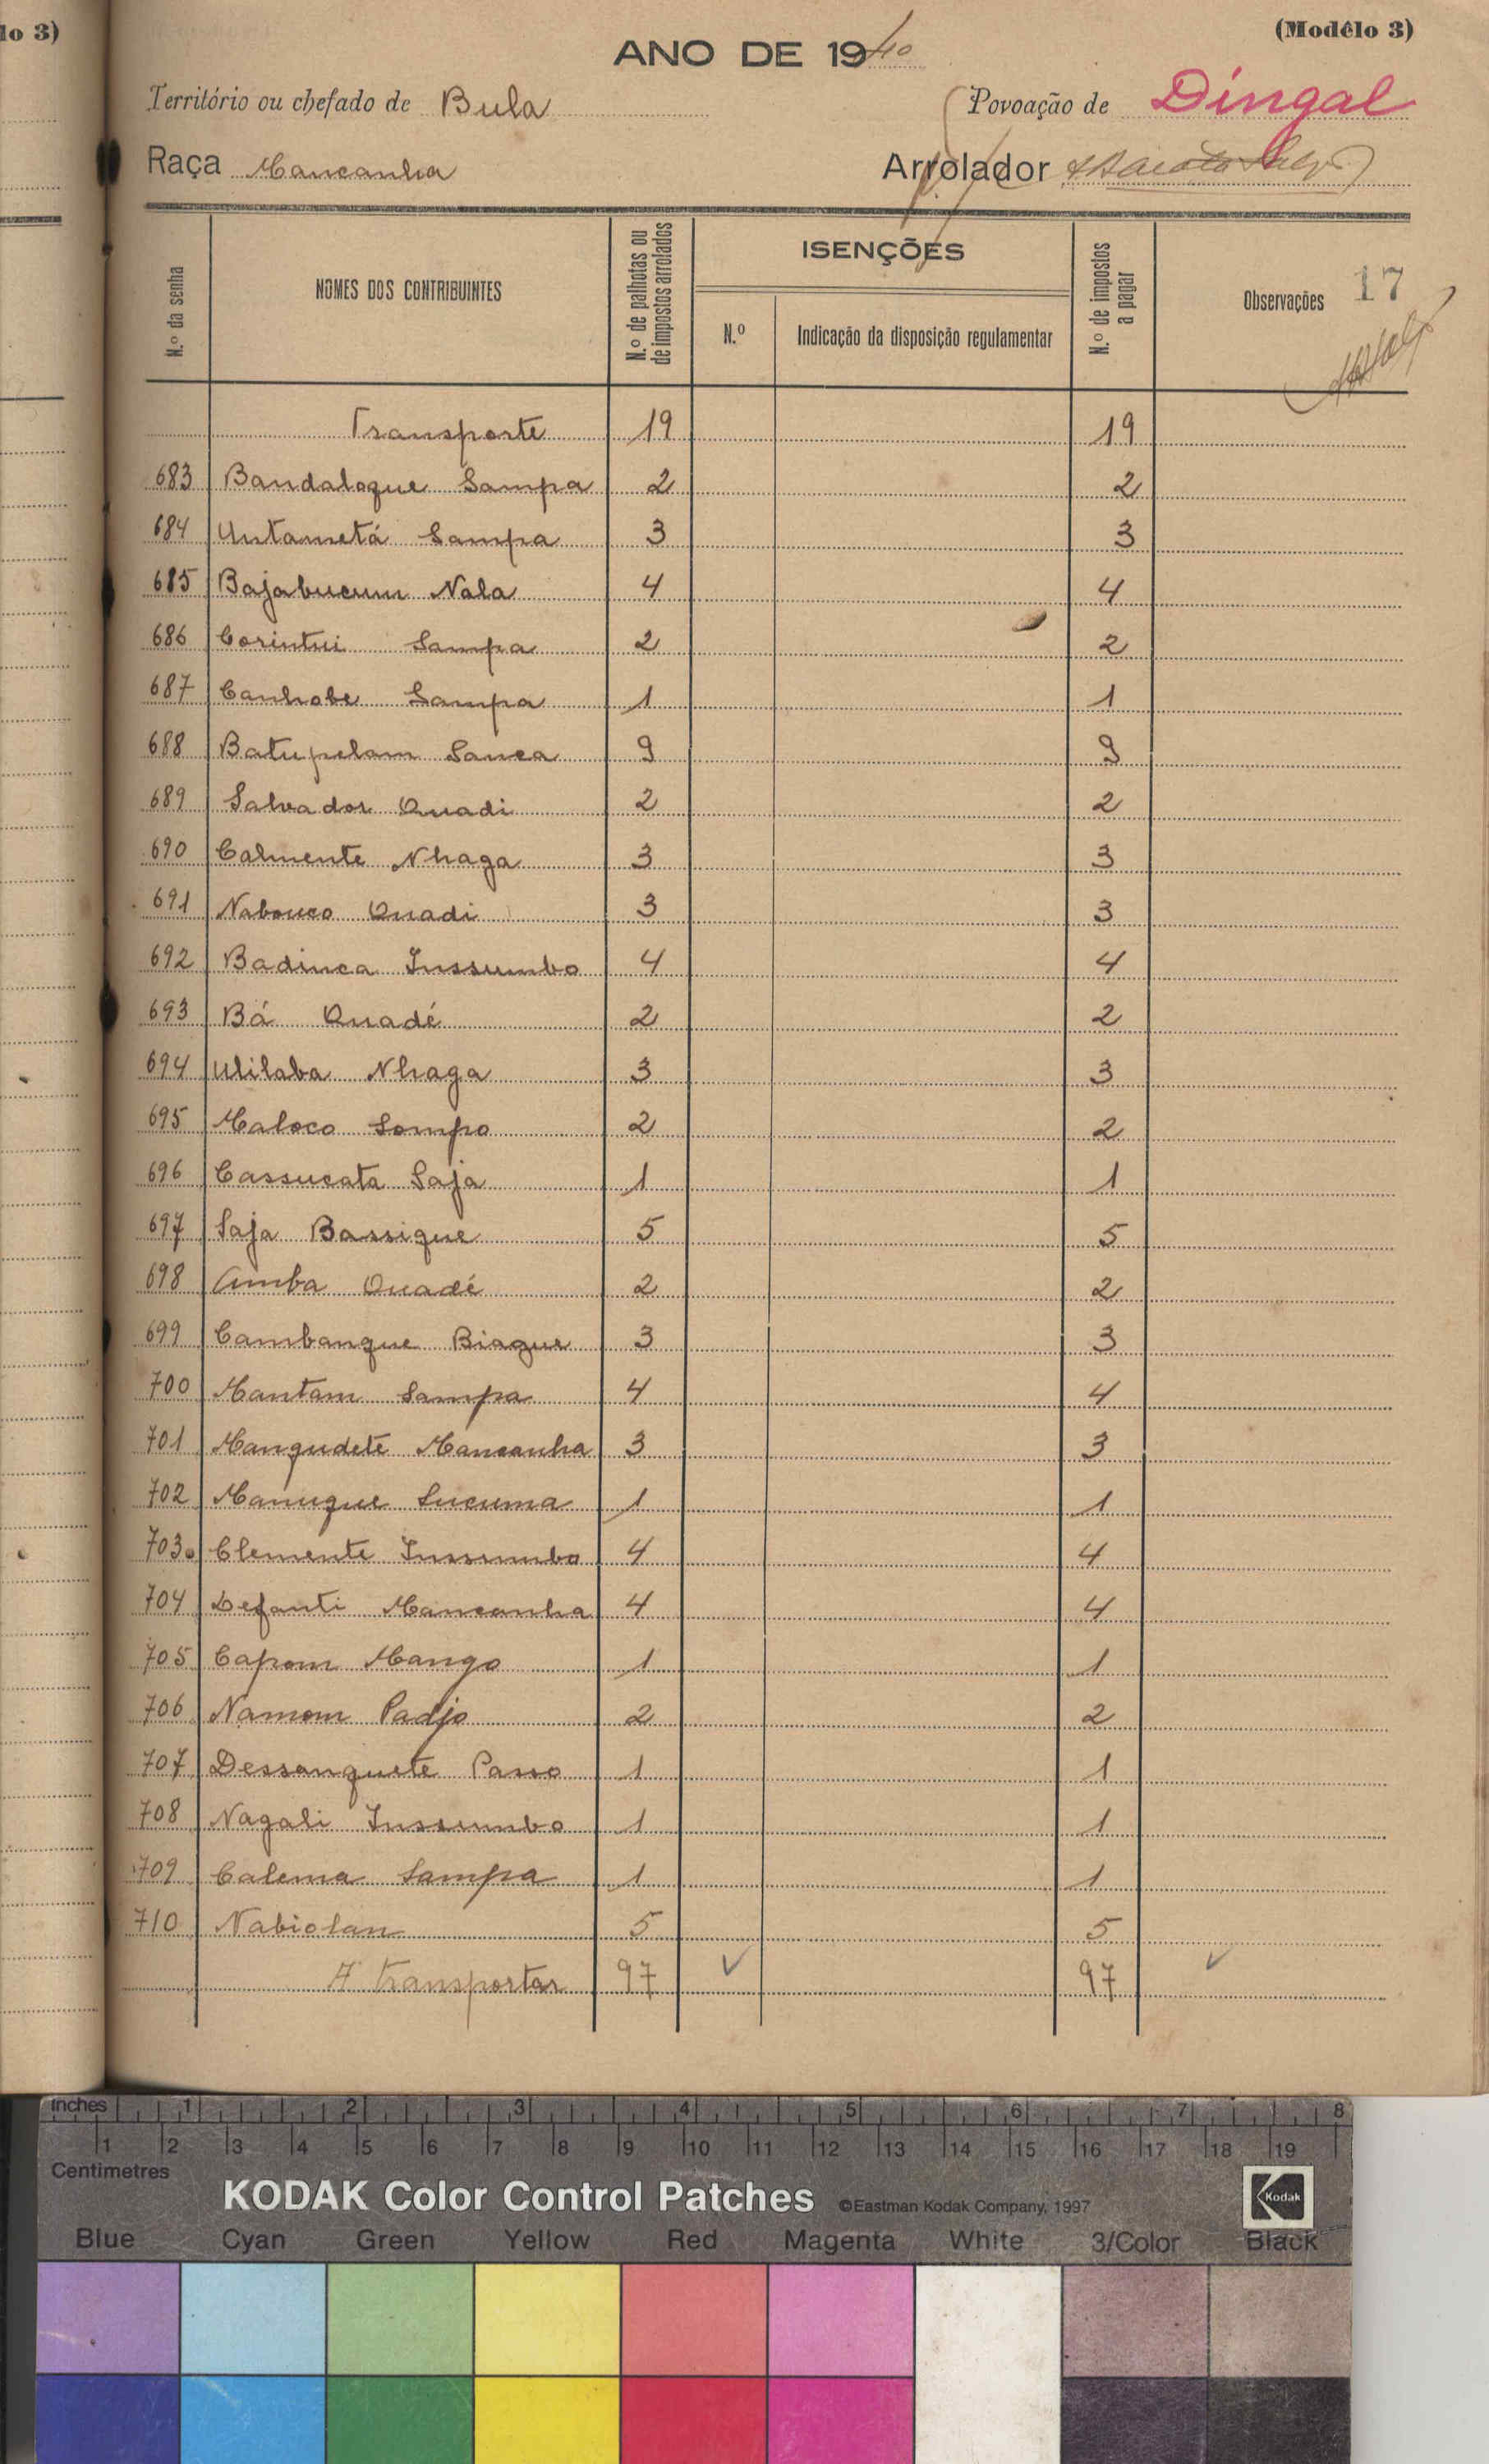 lo 3)
(Modêlo 3)
ANO DE 1940
Território ou chefado de Bula
Povoação de Dingal
Raça Mancanha
Arrolador
N.º da senha
NOMES DOS CONTRIBUINTES
N.º de palhotas ou de impostos arrolados
ISENÇÕES
N.º
Indicação da disposição regulamentar
N.º de impostos a pagar
Observações
17
Transporte 19 19
683 Bandaloque Sampa 2 2
684 Untametá Sampa 3 3
685 Bajabucum Nala 4 4
686 Corintui Sampa 2 2
687 Canhobe Sampa 1 1
688 Batupelam Sanca 9 9
689 Salvador Quadi 2 2
690 Calmente Nhaga 3 3
691 Nabouco Quadi 3 3
692 Badinca Inssumbo 4 4
693 Bá Quadé 2 2
694 Ulilaba Nhaga 3 3
695 Maloco Sompo 2 2
696 Cassucata Saja 1 1
697 Saja Bassique 5 5
698 Cumba Quadé 2 2
699 Cambanque Biague 3 3
700 Mantam Sampa 4 4
701 Mangudete Mancanha 3 3
702 Manuque Sucuma 1 1
703 Clemente Inssumbo 4 4
704 Defanti Mancanha 4 4
705 Capom Mango 1 1
706 Namom Padjo 2 2
707 Dessanquete Passo 1 1
708 Nagali Inssumbo 1 1
709 Calema Sampa 1 1
710 Nabiolan 5 5
A transportar 97 ✓ 97 ✓
Inches 1 2 3 4 5 6 7 8
1 2 3 4 5 6 7 8 9 10 11 12 13 14 15 16 17 18 19
Centimetres
KODAK Color Control Patches ©Eastman Kodak Company, 1997 Kodak
Blue Cyan Green Yellow Red Magenta White 3/Color Black